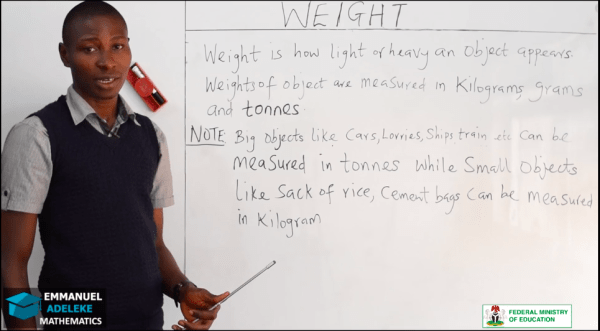 WEIGHT
Weight is how light or heavy an object appears.
Weights of object are measured in Kilograms, grams
and tonnes.
NOTE: Big Objects like Cars, Lorries, Ships train etc can be
measured in tonnes while Small Objects
Like Sack of rice, Cement bags Can be measured
in Kilogram
EMMANUEL
ADELEKE
MATHEMATICS
FEDERAL MINISTRY
OF EDUCATION